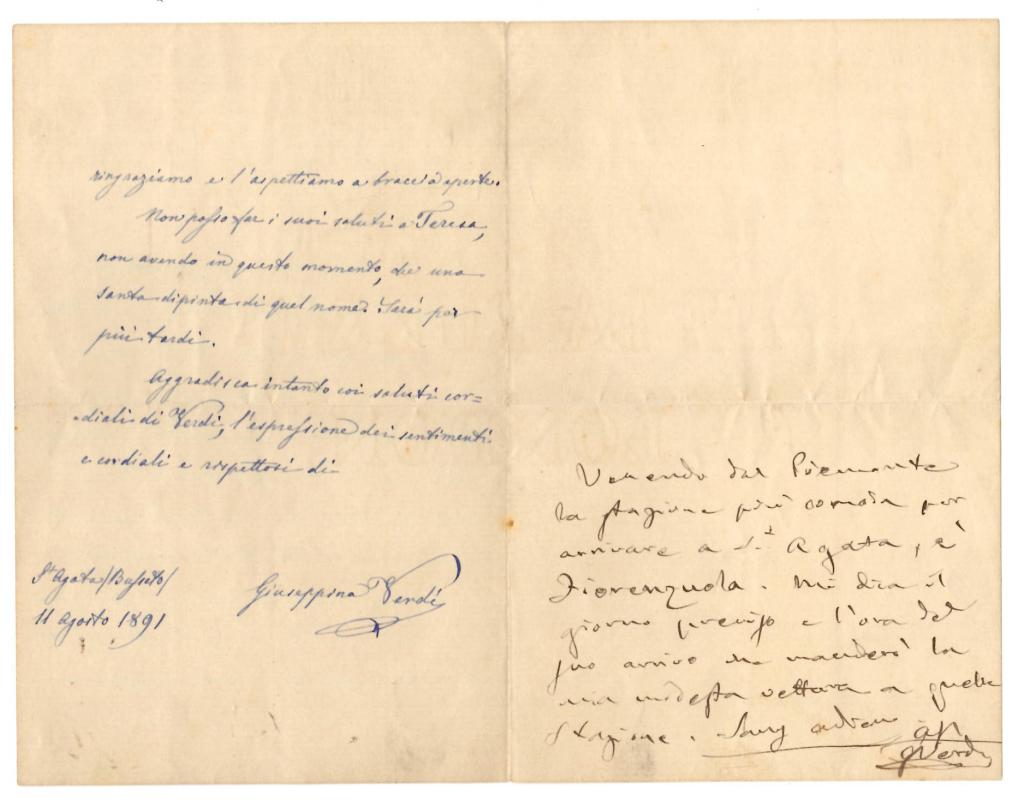 ringraziamo e l'aspettiamo a braccia aperte.
Non posso far i suoi saluti a Teresa,
non avendo in questo momento, che una
santa dipinta di quel nome. Sarà per
più tardi.
Aggradisca intanto coi saluti cor=
diali di Verdi, l'espressione dei sentimenti
e cordiali e rispettosi di
St Agata/Busseto/
11 Agosto 1891
Giuseppina Verdi
Venendo dal Piemonte
la stazione più comoda per
arrivare a St. Agata, è
Fiorenzuola. Mi dica il
giorno preciso e l'ora del
suo arrivo che manderò la
mia modesta vettura a quella
Stazione. adieu
GVerdi